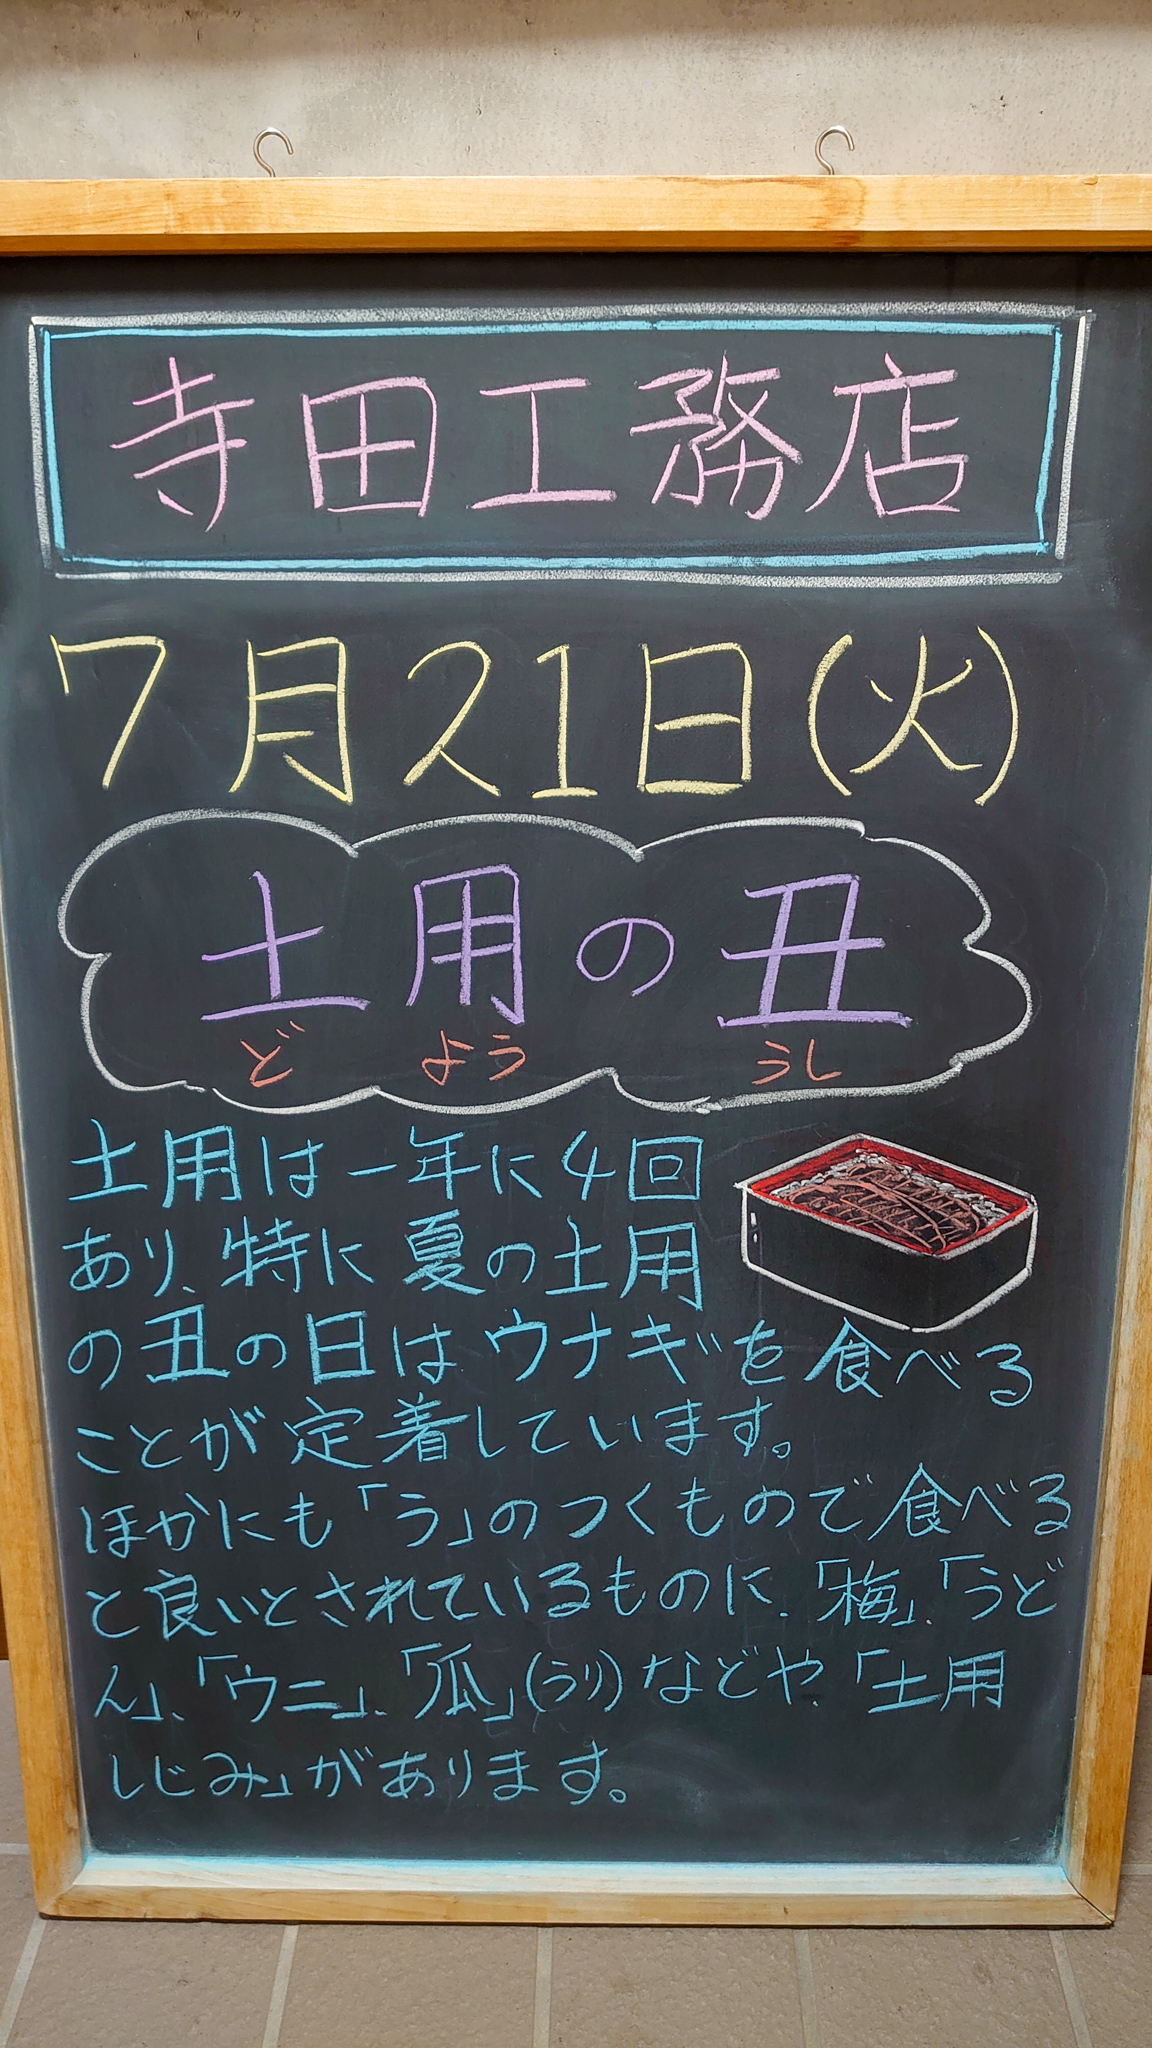 寺田工務店
7月21日(火)
土用の丑
どよううし
土用は一年に4回
あり、特に夏の土用
の丑の日はウナギを食べる
ことが定着しています。
ほかにも「う」のつくもので食べる
と良いとされているものに、「梅」、「うど
ん」、「ウニ」、「瓜」(うり)などや、「土用
しじみ」があります。